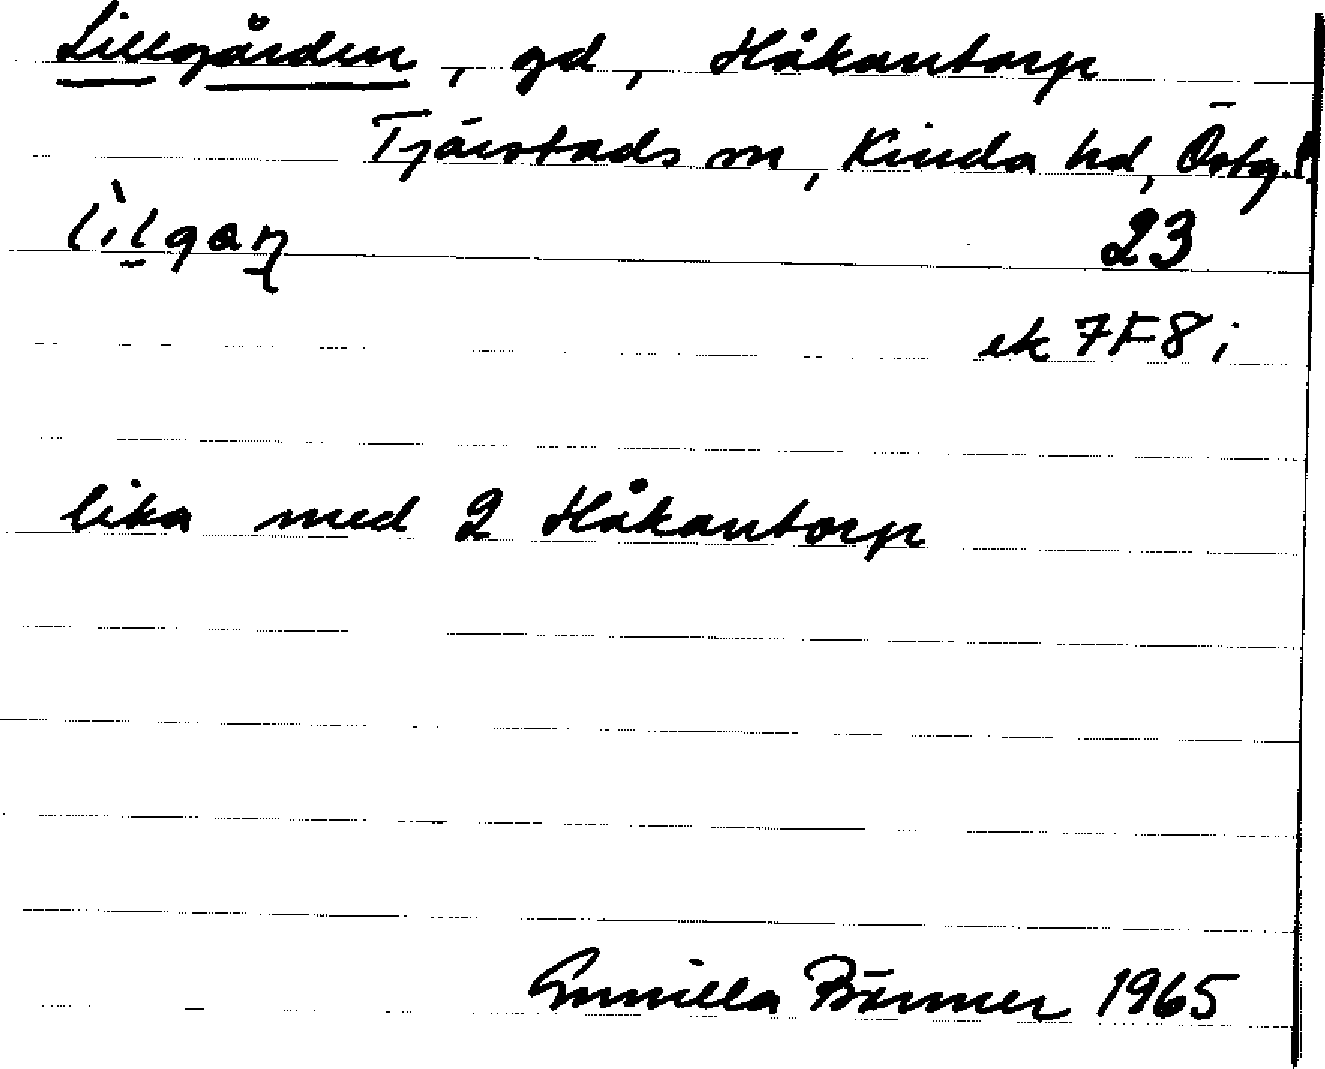 Lillgården, gd, Håkantorp
Tjärstads sn, Kinda hd, Östg.
23
ek 7F8i
lika med 2 Håkantorp
Gunilla Bönner 1965